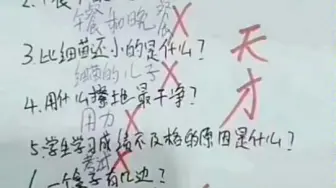 午餐和晚餐
3.比细菌还小的是什么?
细菌的儿子
4.用什么擦地最干净?
用力
5.学生学习成绩不及格的原因是什么?
考试
一个
有几边?
天才